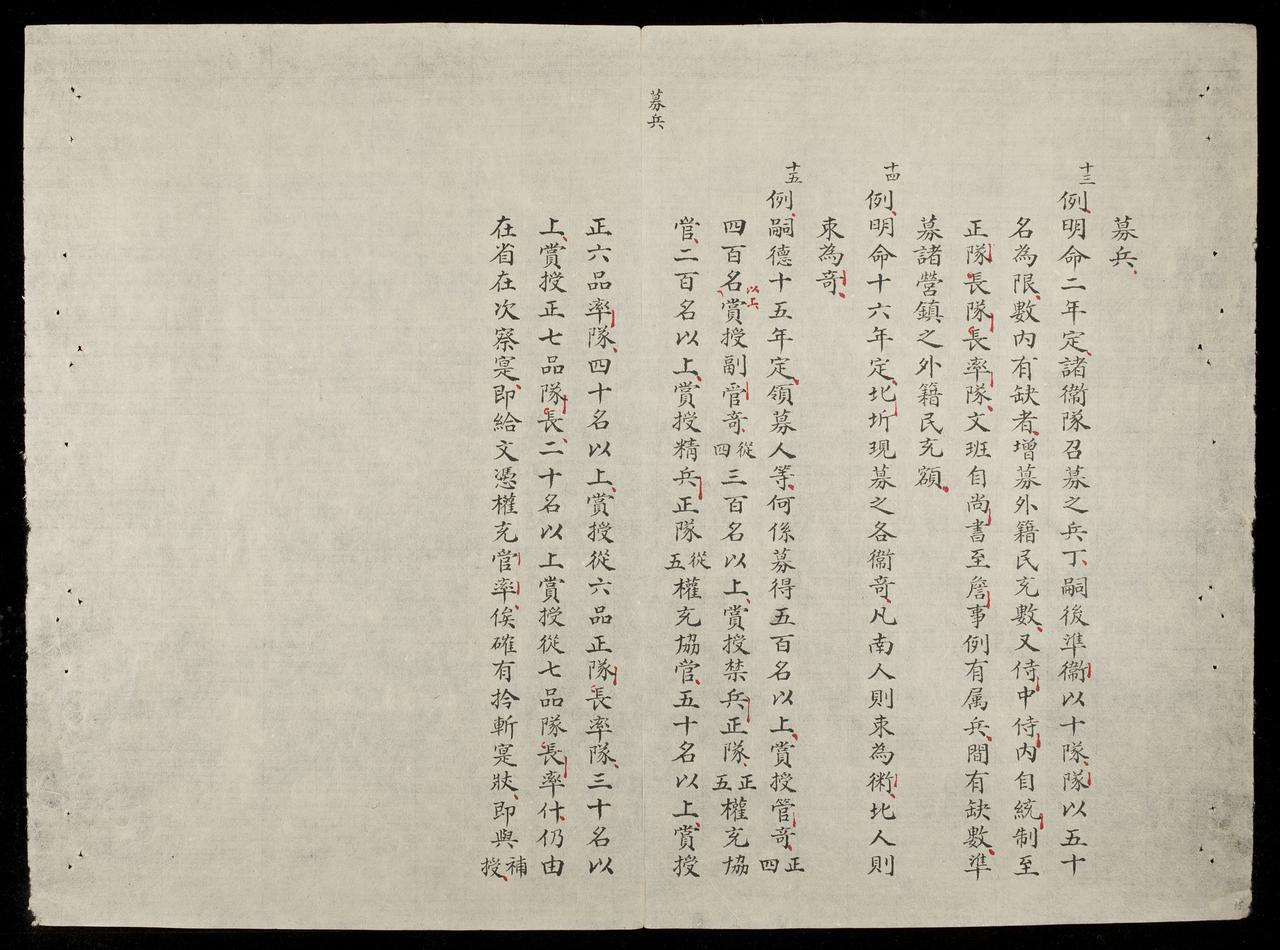 募兵
募兵
十三
例明命二年定諸衞隊召募之兵丁嗣後準衞以十隊隊以五十
名為限數内有缺者增募外籍民充數又侍中侍内自統制至
正隊長隊長率隊文班自尚書至詹事例有属兵間有缺數準
募諸營鎮之外籍民充額
十四
例明命十六年定北圻現募之各衞竒凡南人則束為衞北人則
束為竒
十五
例嗣德十五年定領募人等何係募得五百名以上賞授管竒正四
四百名以上賞授副管竒從四三百名以上賞授禁兵正隊正五權充協
管二百名以上賞授精兵正隊從五權充協管五十名以上賞授
正六品率隊四十名以上賞授從六品正隊長率隊三十名以
上賞授正七品隊長二十名以上賞授從七品隊長率什仍由
在省在次察寔即給文憑權充管率俟確有拎斬寔狀即與補授